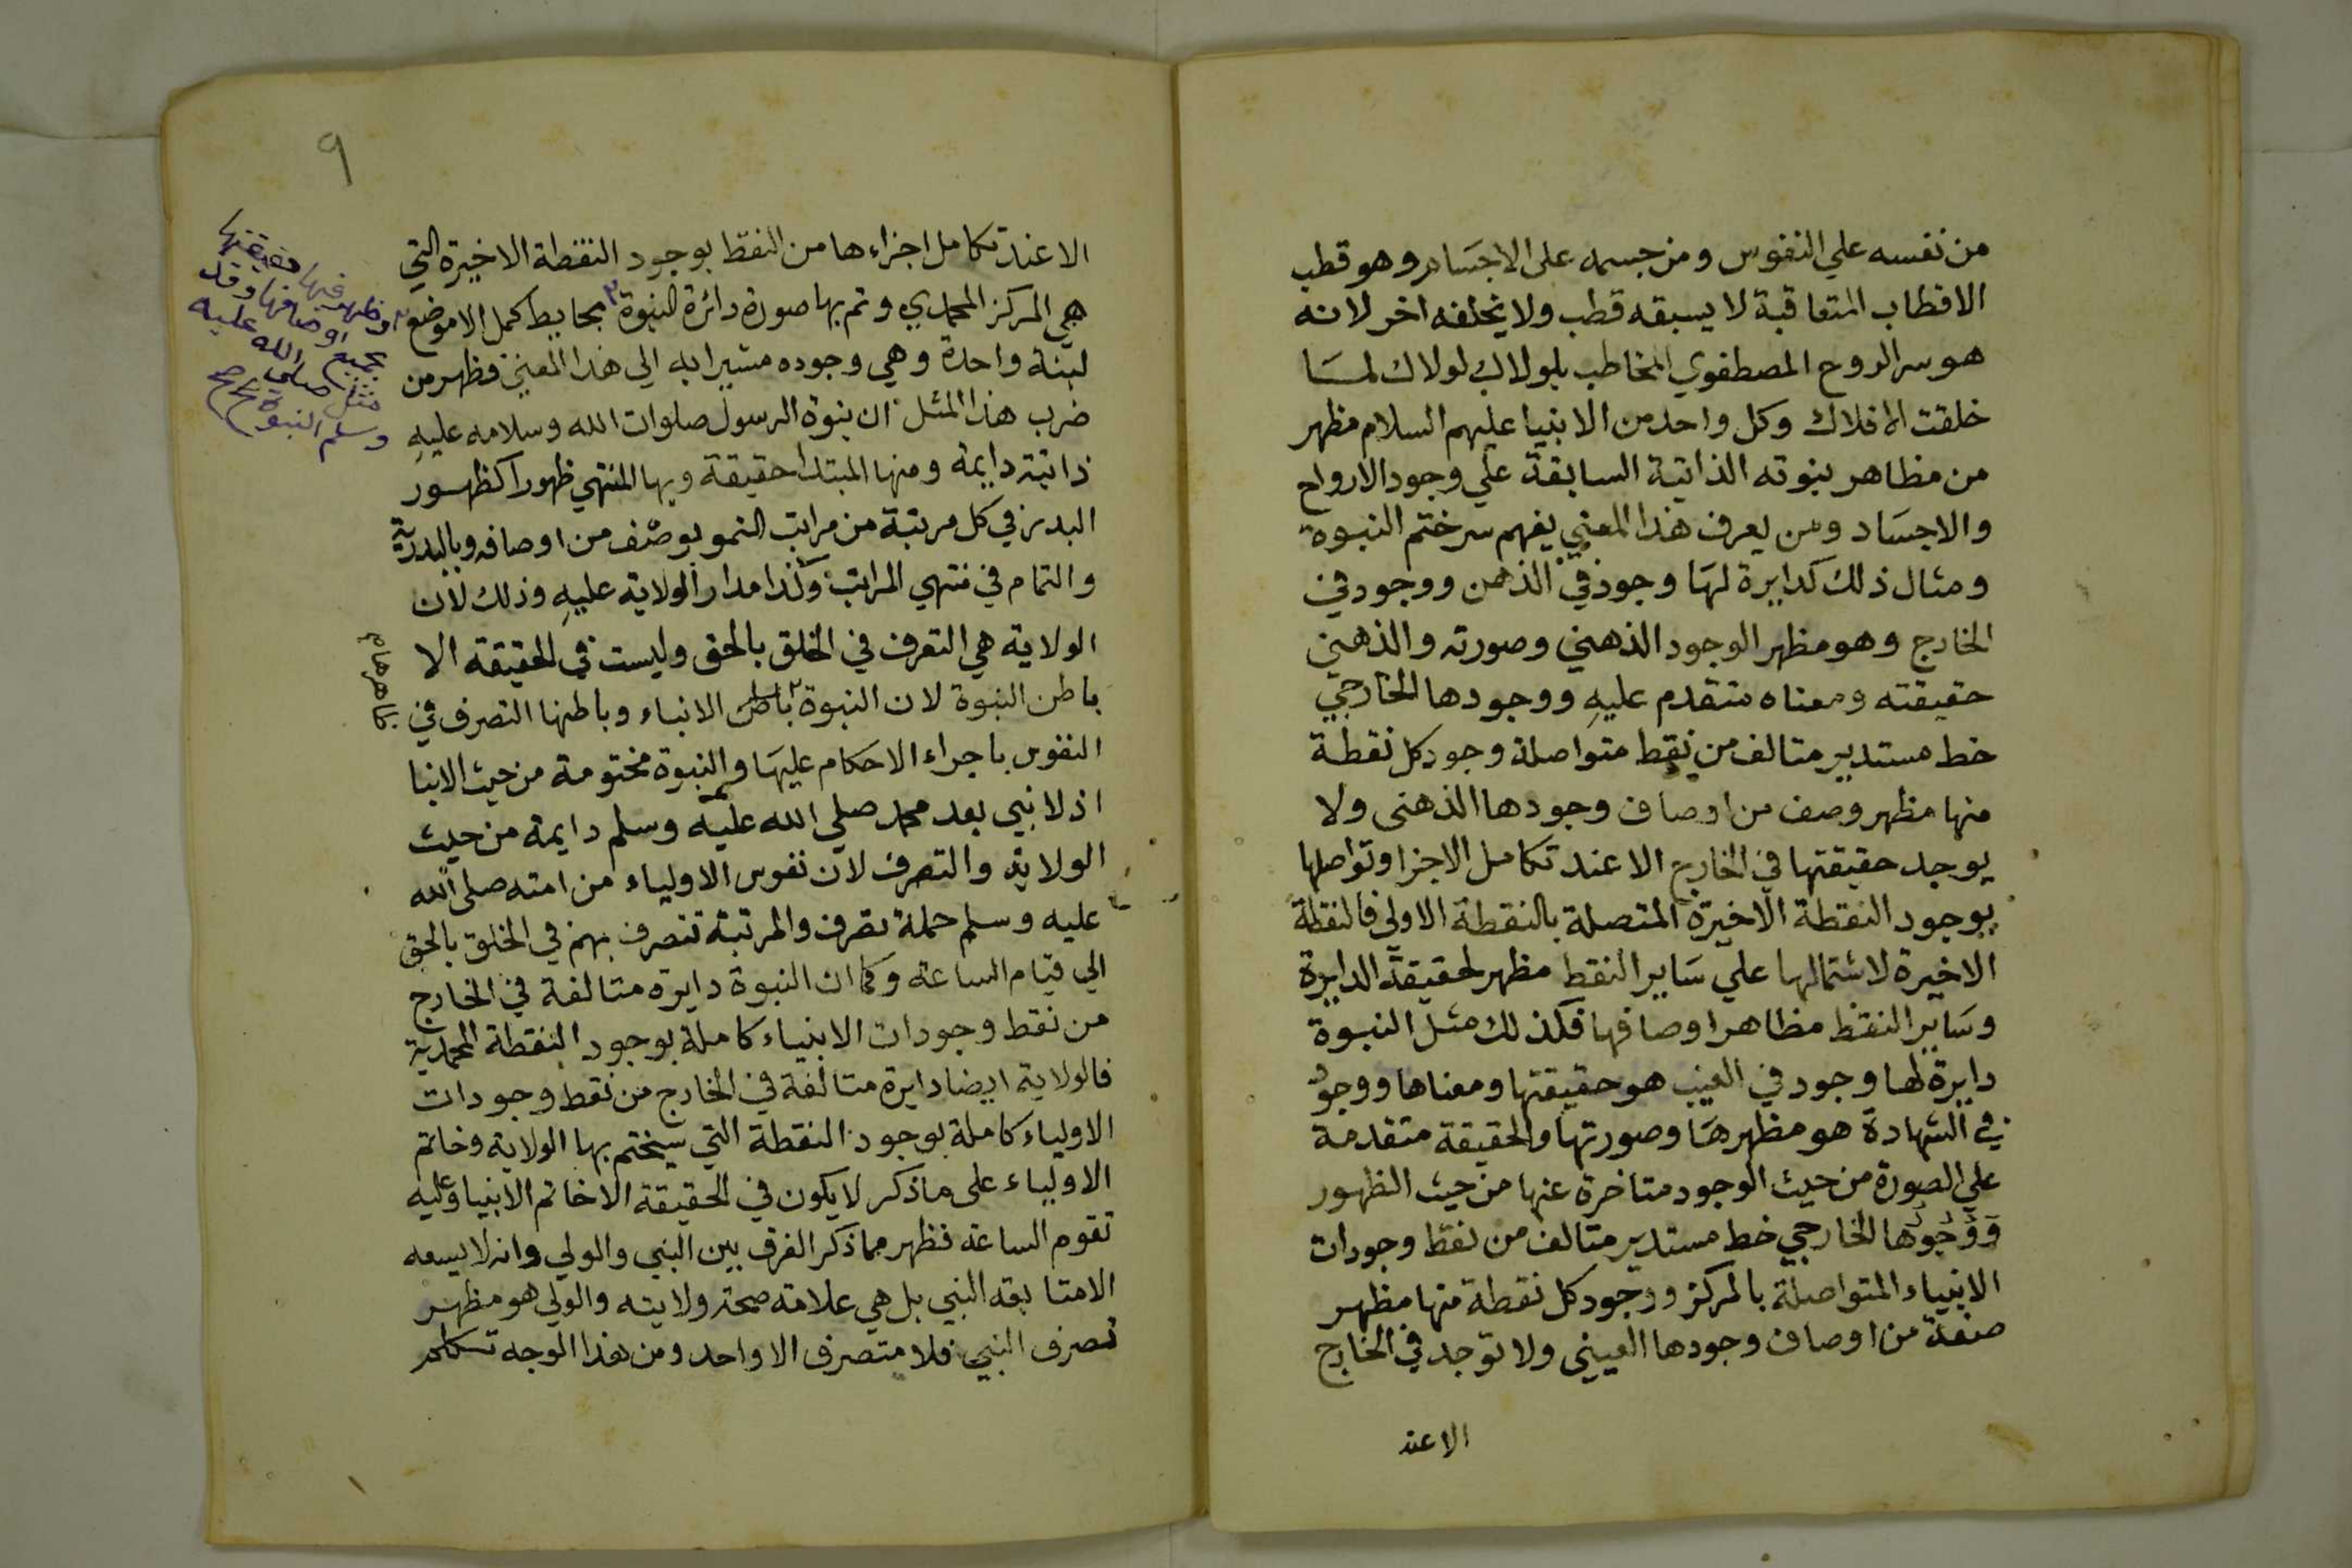 من نفسه علي النفوس ومن جسمه على الاجساد وهو قطب
الاقطاب المتعاقبة لا يسبقه قطب ولا يخلفه اخر لانه
هو سر الروح المصطفوي المخاطب بلولاك لولاك لمسا
خلقت الافلاك وكل واحد من الانبيا عليهم السلام مظهر
من مظاهر بنوته الذاتية السابقة علي وجود الارواح
والاجساد ومن يعرف هذا المعني يفهم سر ختم النبوة
ومثال ذلك كدايرة لها وجود في الذهن ووجود في
الخارج وهو مظهر الوجود الذهني وصورته والذهني
حقيقته ومعناه متقدم عليهِ ووجودها الخارجي
خط مستدير متالف من نقط متواصلة وجود كل نقطة
منها مظهر وصف من اوصاف وجودها الذهنى ولا
يوجد حقيقتها في الخارج الا عند تكامل الاجزا وتواصلها
بوجود النقطة الاخيرة المتصلة بالنقطة الاولي فالنقطة
الاخيرة لاشتمالها علي ساير النقط مظهر لحقيقة الدايرة
وساير النقط مظاهر اوصافها فكذلك مثل النبوة
دايرة لها وجود في الغيب هو حقيقتها ومعناها ووجود
في الشهادة هو مظهرها وصورتها والحقيقة متقدمة
علي الصورة من حيث الوجود متاخرة عنها من حيث الظهور
ووجودها الخارجي خط مستدير متالف من نقط وجودات
الانبياء المتواصلة بالمركز ووجود كل نقطة منها مظهر
صفة من اوصاف وجودها العينى ولا توجد في الخارج
الا عند
٩
الا عند تكامل اجزاءها من النقط بوجود النقطة الاخيرة التي
هي المركز المحمدي وتم بها صورة دائرة النبوة ٢ بحايط كمل الا موضع
لبنة واحدة وهي وجوده مشيرا به الي هذا المعني فظهر من
ضرب هذا المثل ان بنوة الرسول صلوات الله وسلامه عليهِ
ذاتية دايمة ومنها المبتدا حقيقة وبها المنتهي ظهورا كظهور
البدر في كل مرتبة من مراتب النمو بوصف من اوصافه وبالبدرية
والتمام في منتهي المراتب وكذا مدار الولاية عليهِ وذلك لان
الولاية هي التصرف في الخلق بالحق وليست في الحقيقة الا
باطن النبوة لان النبوة الانباء وباطنها التصرف في
النفوس باجراء الاحكام عليها والنبوة مختومة من حيث الانبا
اذ لا نبي بعد محمد صلي الله عليه وسلم دايمة من حيث
الولاية والتصرف لان نفوس الاولياء من امته صلى الله
عليه وسلم حملة تصرف والمرتبة تتصرف بهم في الخلق بالحق
الي قيام الساعة وكما ان النبوة دايرة متالفة في الخارج
من نقط وجودات الانبياء كاملة بوجود النقطة المحمدية
فالولاية ايضا دايرة متالفة في الخارج من نقط وجودات
الاولياء كاملة بوجود النقطة التي سيختم بها الولاية وخاتم
الاولياء على ما ذكر لا يكون في الحقيقة الا خاتم الانبيا وعليه
تقوم الساعة فظهر مما ذكر الفرق بين النبي والولي وانه لا يسعه
الا متابعة النبي بل هي علامة صحة ولايته والولي هو مظهر
تصرف النبي فلا متصرف الا واحد ومن هذا الوجه
وظهر فيها حقيقتها
بجميع اوصافها وقد
مثل صلى الله عليه
وسلم النبوة صح
ظاهرها